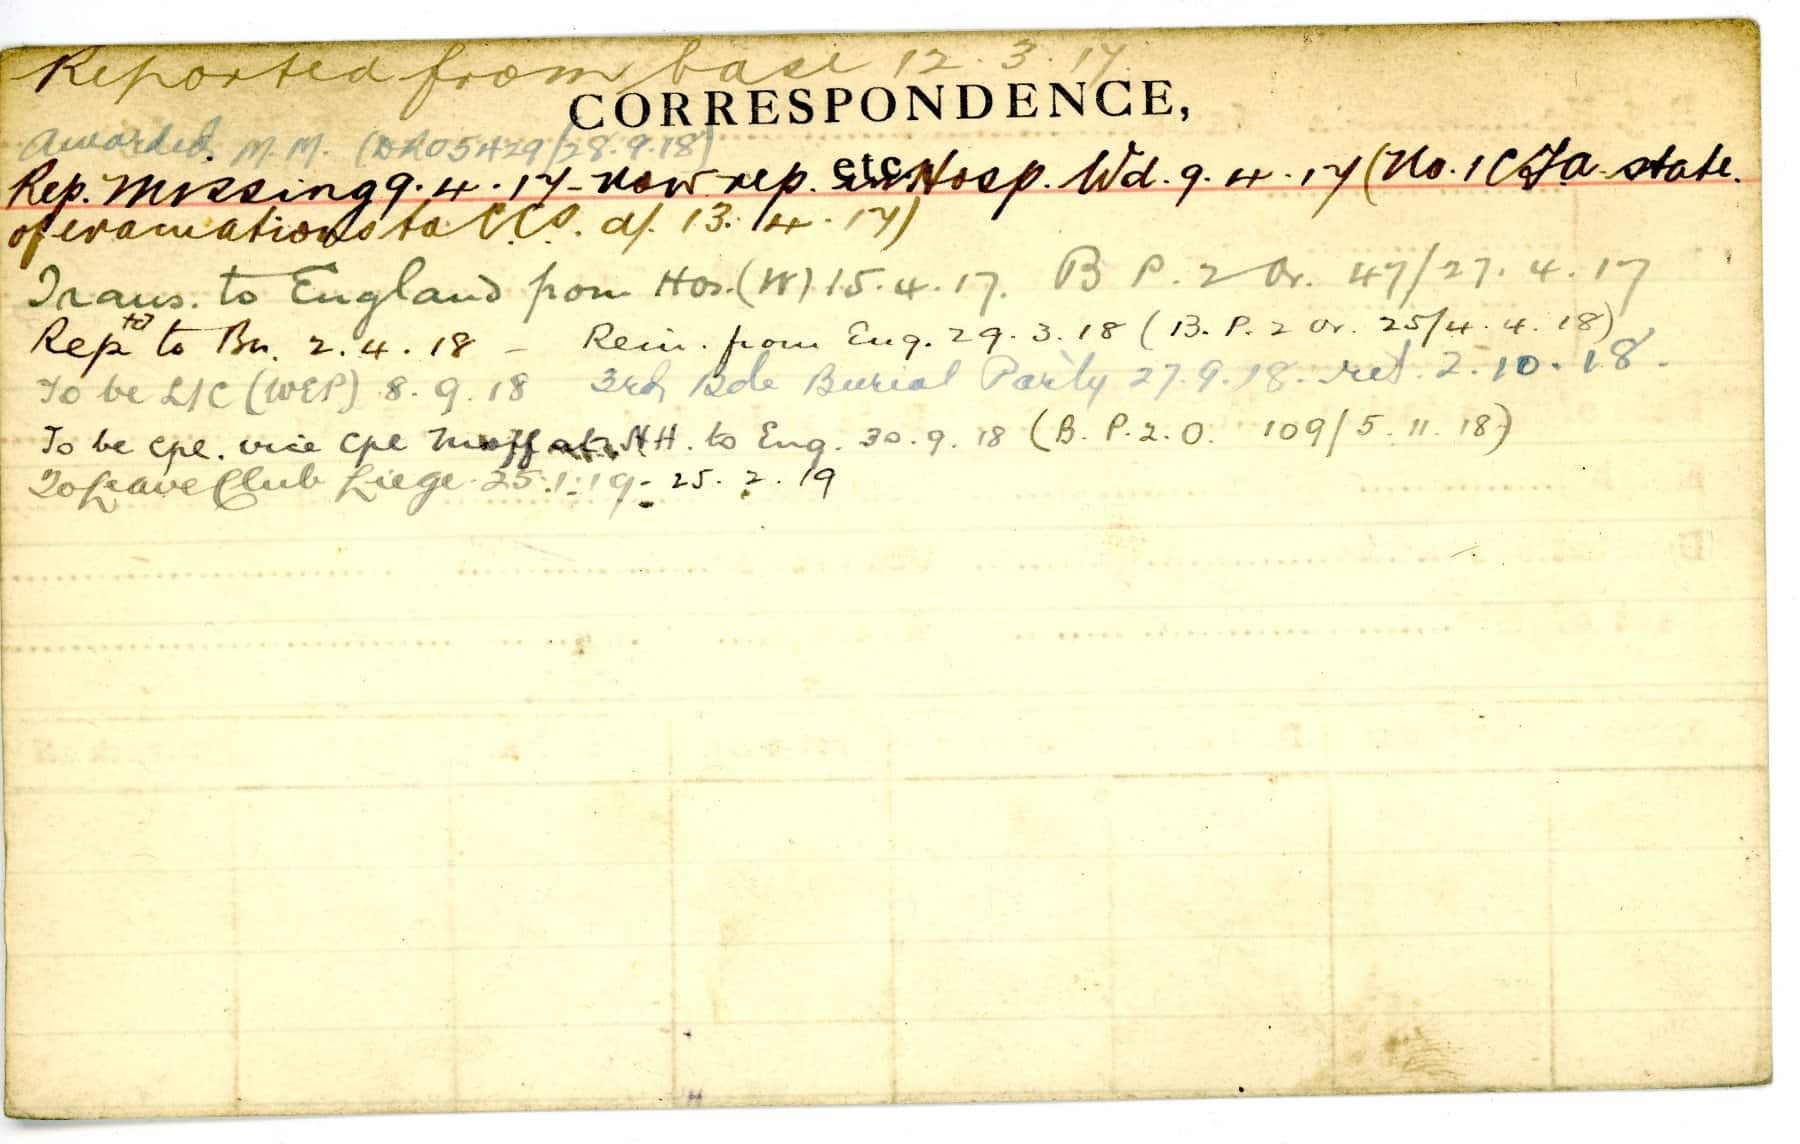 Reported from base 12.3.17.
CORRESPONDENCE,
Awarded M.M. (DRO5429/28.9.18)
etc.
Rep. Missing 9.4.17 - now rep. in Hosp. Wd. 9.4.17 (No. 1 CFA state.
of evacuations to CCS. d/. 13.4.17)
Trans. to England from Hos. (W) 15.4.17. B P. 2 Or. 47/27.4.17
Reptd to Bn. 2.4.18 - Rein. from Eng. 29.3.18 (B.P. 2 Or. 25/4.4.18)
To be L/C (WEP) 8.9.18 3rd Bde Burial Party 27.9.18. ret. 2.10.18.
To be Cpl. vice Cpl Moffat, H. to Eng. 30.9.18 (B.P.2.O. 109/5.11.18)
To Leave Club Liege 25.1.19 - 25.2.19